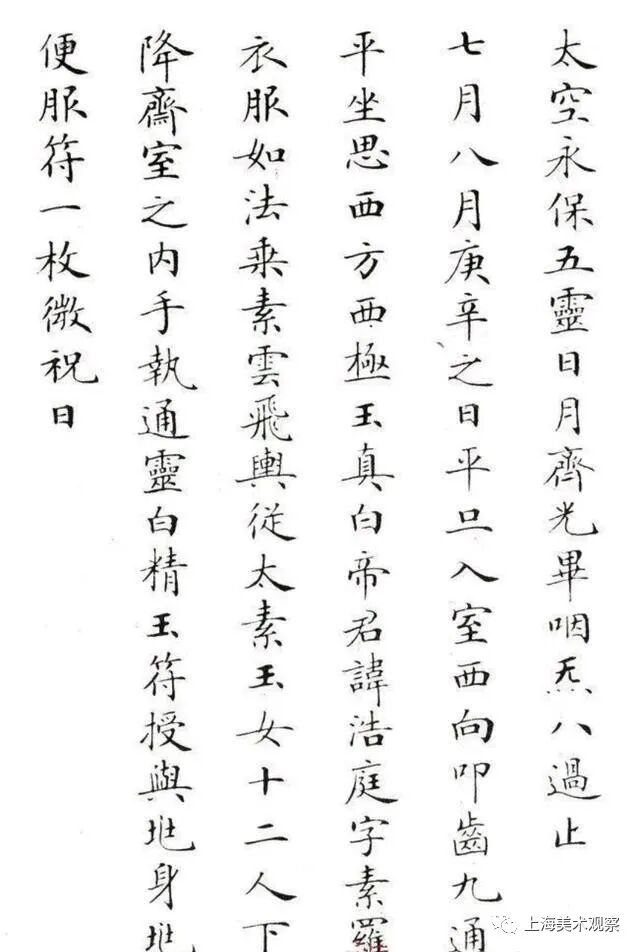 太空永保五靈日月齊光畢咽炁八過止
七月八月庚辛之日平旦入室西向叩齒九通
平坐思西方西極玉真白帝君諱浩庭字素羅
衣服如法乘素雲飛輿從太素玉女十二人下
降齋室之内手執通靈白精玉符授與地身地
便服符一枚微祝曰
上海美术观察